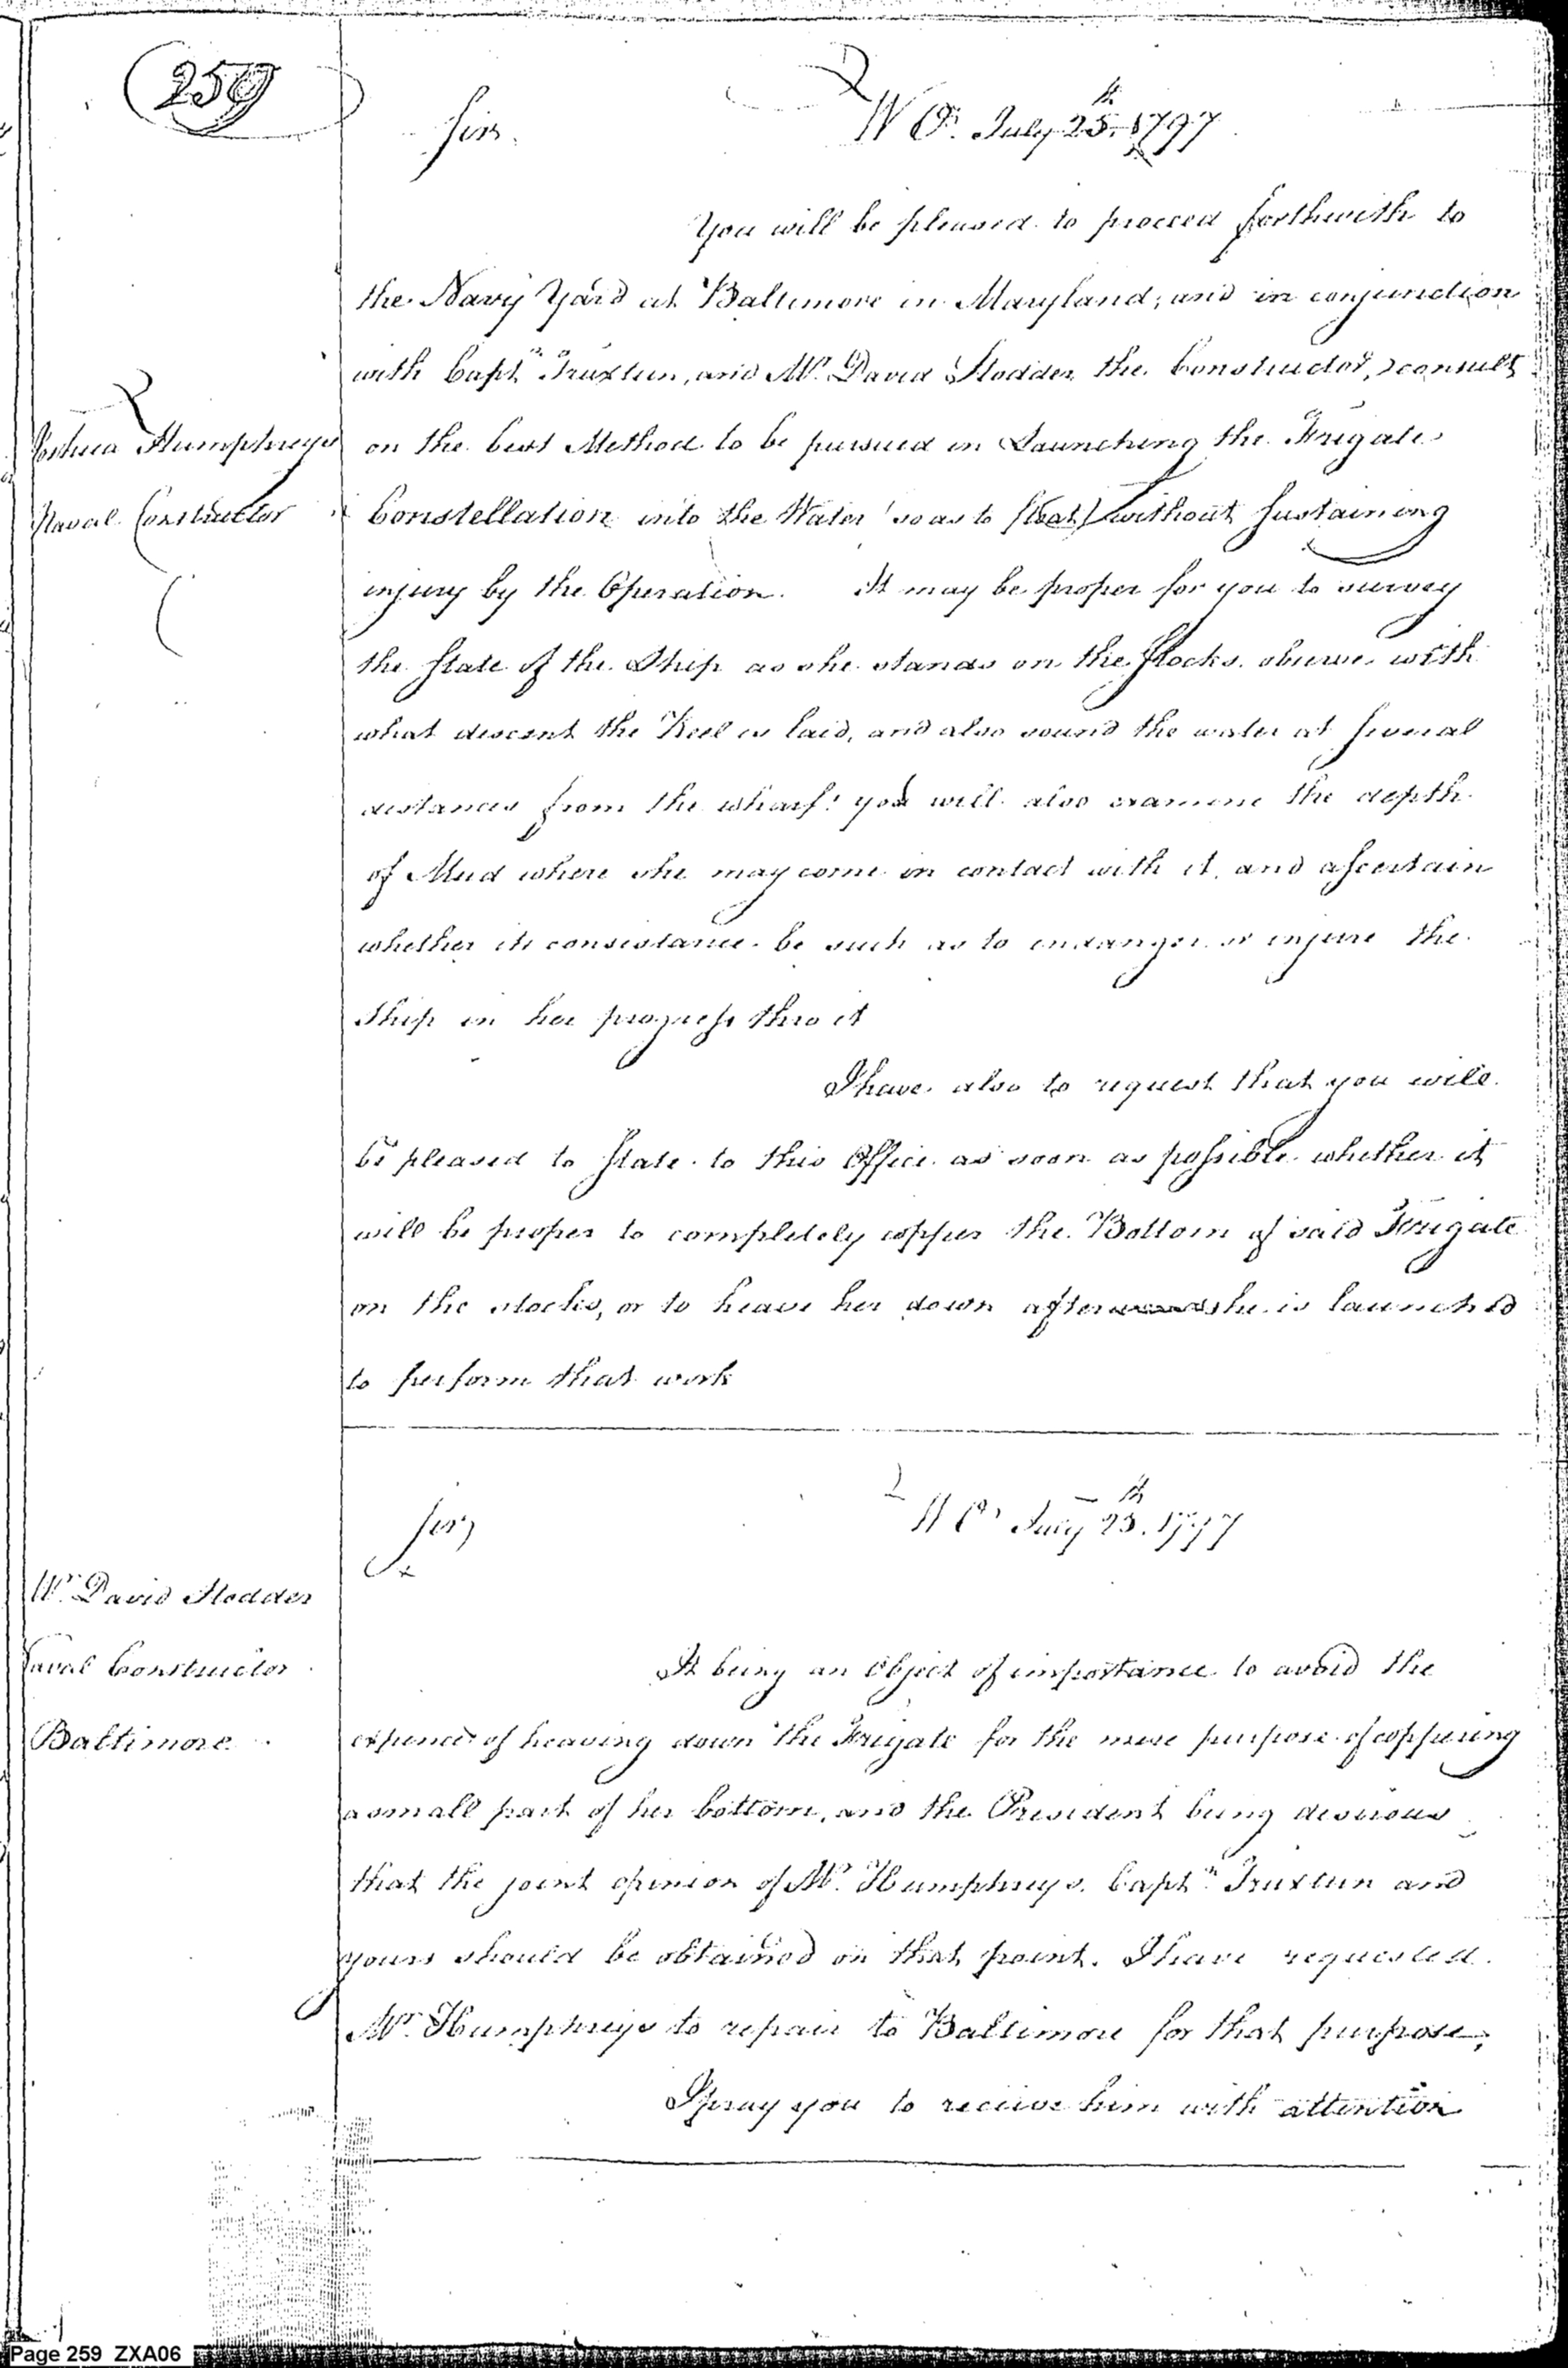 259
Sir.
W O. July 25th 1797
You will be pleased to proceed forthwith to
the Navy Yard at Baltimore in Maryland, and in conjunction
with Captn Truxtun, and Mr. David Stodder the Constructor, consult
Joshua Humphreys
on the best Method to be pursued in Launching the Frigate
Naval Constructor
Constellation into the Water (so as to float) without sustaining
injury by the Operation. It may be proper for you to survey
the State of the Ship as she stands on the Stocks. observe with
what descent the Keel is laid, and also sound the water at several
distances from the wharf: you will also examine the depth
of Mud where she may come in contact with it, and ascertain
whether its consistance be such as to endanger or injure the
Ship in her progress thro it
I have also to request that you will
be pleased to State to this Office as soon as possible whether it
will be proper to completely copper the Bottom of said Frigate
on the stocks, or to heave her down after she is launched
to perform that work
Sir
W O July 25th 1797
Mr. David Stodder
Naval Constructor
It being an Object of importance to avoid the
Baltimore
expence of heaving down the Frigate for the mere purpose of coppering
a small part of her bottom, and the President being desirous
that the joint opinion of Mr. Humphreys, Captn Truxtun and
yours should be obtained on that point. I have requested
Mr. Humphreys to repair to Baltimore for that purpose,
I pray you to receive him with attention
Page 259 ZXA06